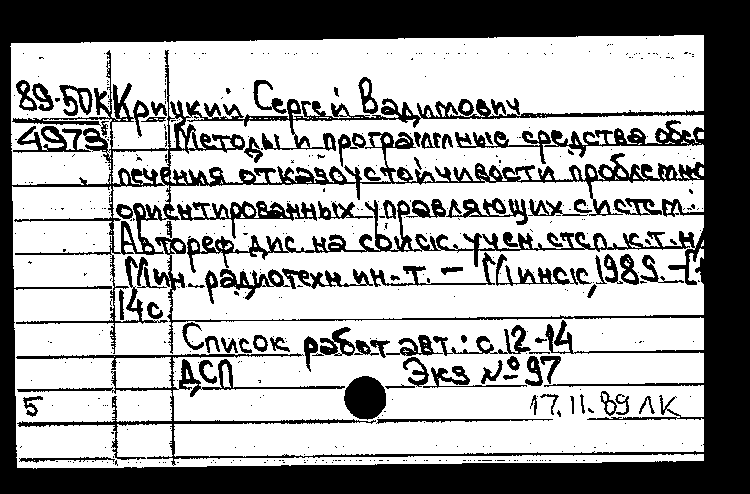 89-50К Крицкий, Сергей Вадимович
4973 Методы и программные средства обес
печения отказоустойчивости проблемно
ориентированных управляющих систем:
Автореф. дис. на соиск. учен. степ. к.т.н/
Мин. радиотехн. ин-т. – Минск, 1989. –
14с.
Список работ авт.: с.12-14
ДСП Экз №97
5 17.11.89 ЛК